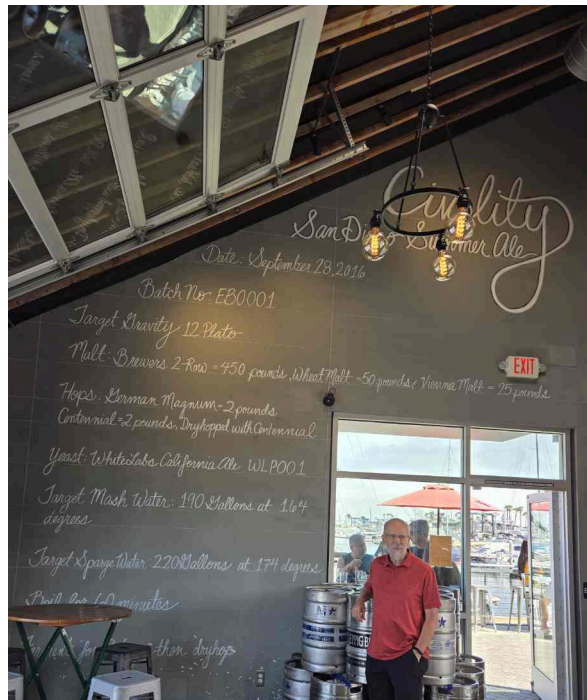 Civility
San Diego Summer Ale
Date: September 28, 2016
Batch No: EB0001
Target Gravity 12 Plato
Malt: Brewers 2-Row = 450 pounds, Wheat Malt = 50 pounds, Vienna Malt = 25 pounds
EXIT
Hops: German Magnum = 2 pounds
Centennial = 2 pounds, Dryhopped with Centennial
Yeast: White Labs California Ale WLP001
Target Mash Water: 190 Gallons at 164
degrees
Target Sparge Water: 220 Gallons at 174 degrees
Boil for 60 minutes
then dryhop